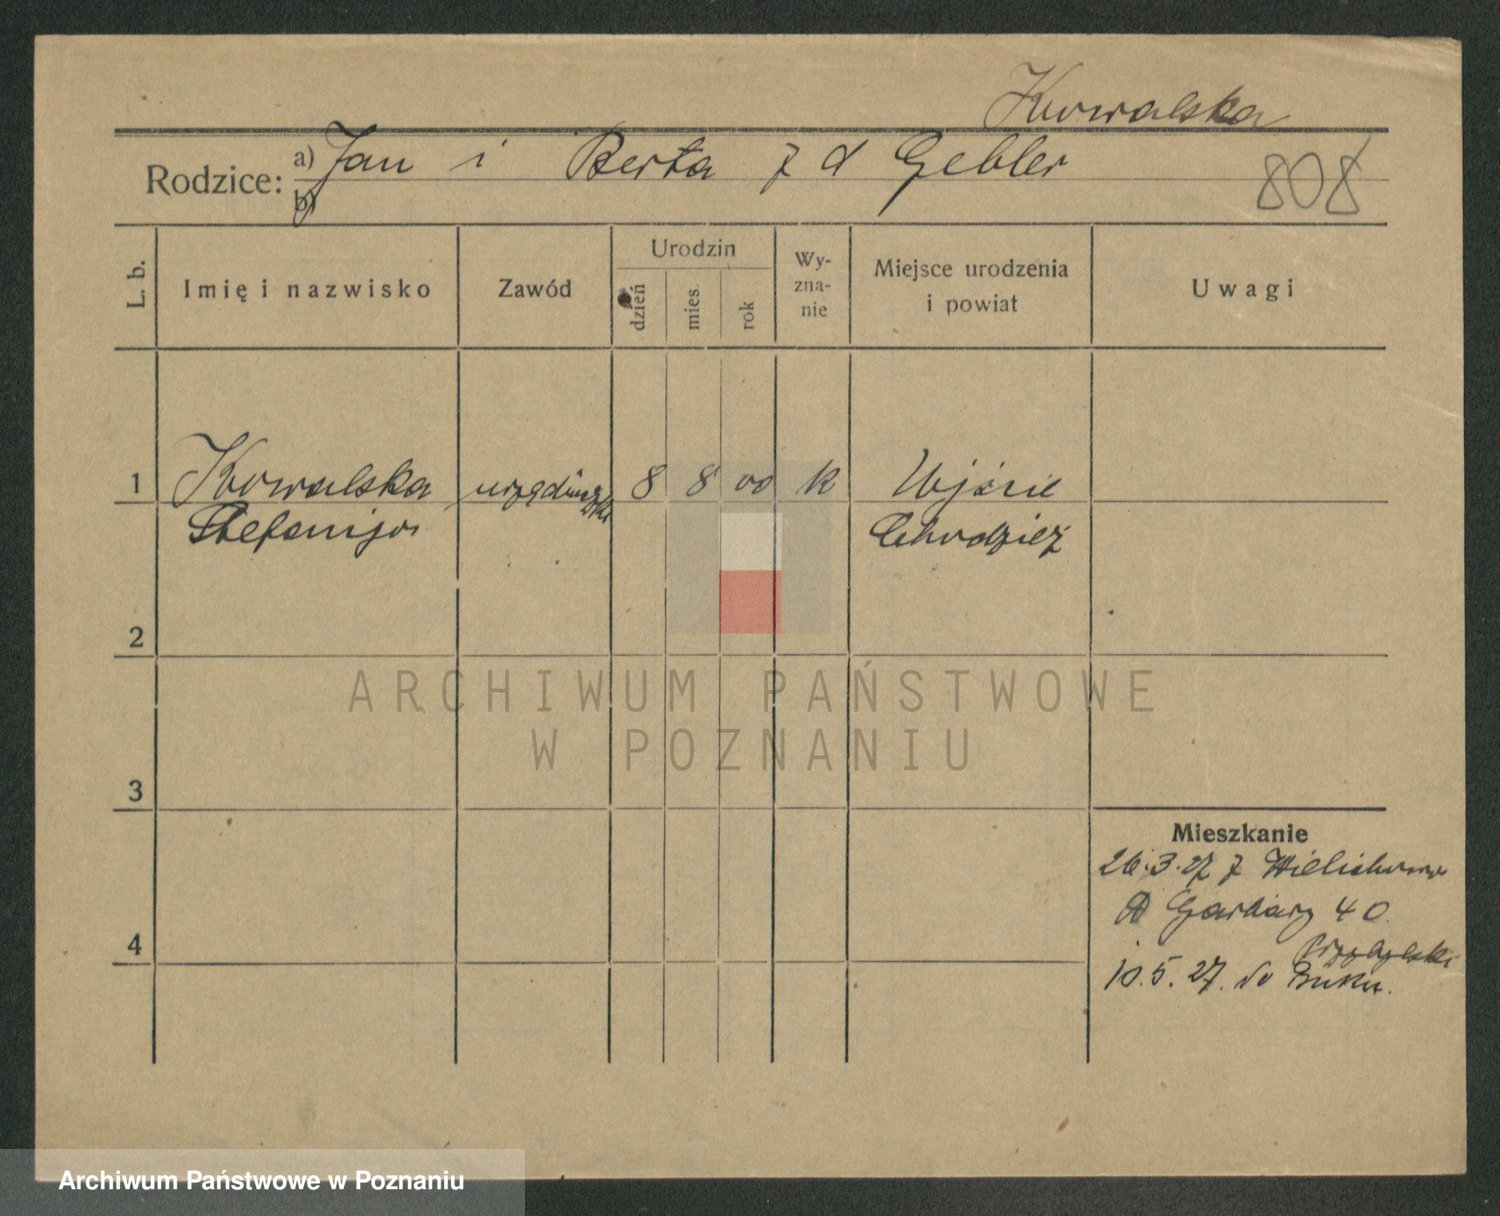 Kowalska
Rodzice: a) Jan i Berta z d Gebler
b)
808
L. b.
Imię i nazwisko
Zawód
Urodzin
dzień
mies.
rok
Wy-
zna-
nie
Miejsce urodzenia
i powiat
Uwagi
1 Kowalska urzędniczka 8 8 00 k Ujście
Stefanija Chodzież
2
3
4
Mieszkanie
26.3.27 z Wielichowa
Garbary 40
Przybylski
10.5.27. do Buku.
ARCHIWUM PAŃSTWOWE
W POZNANIU
Archiwum Państwowe w Poznaniu